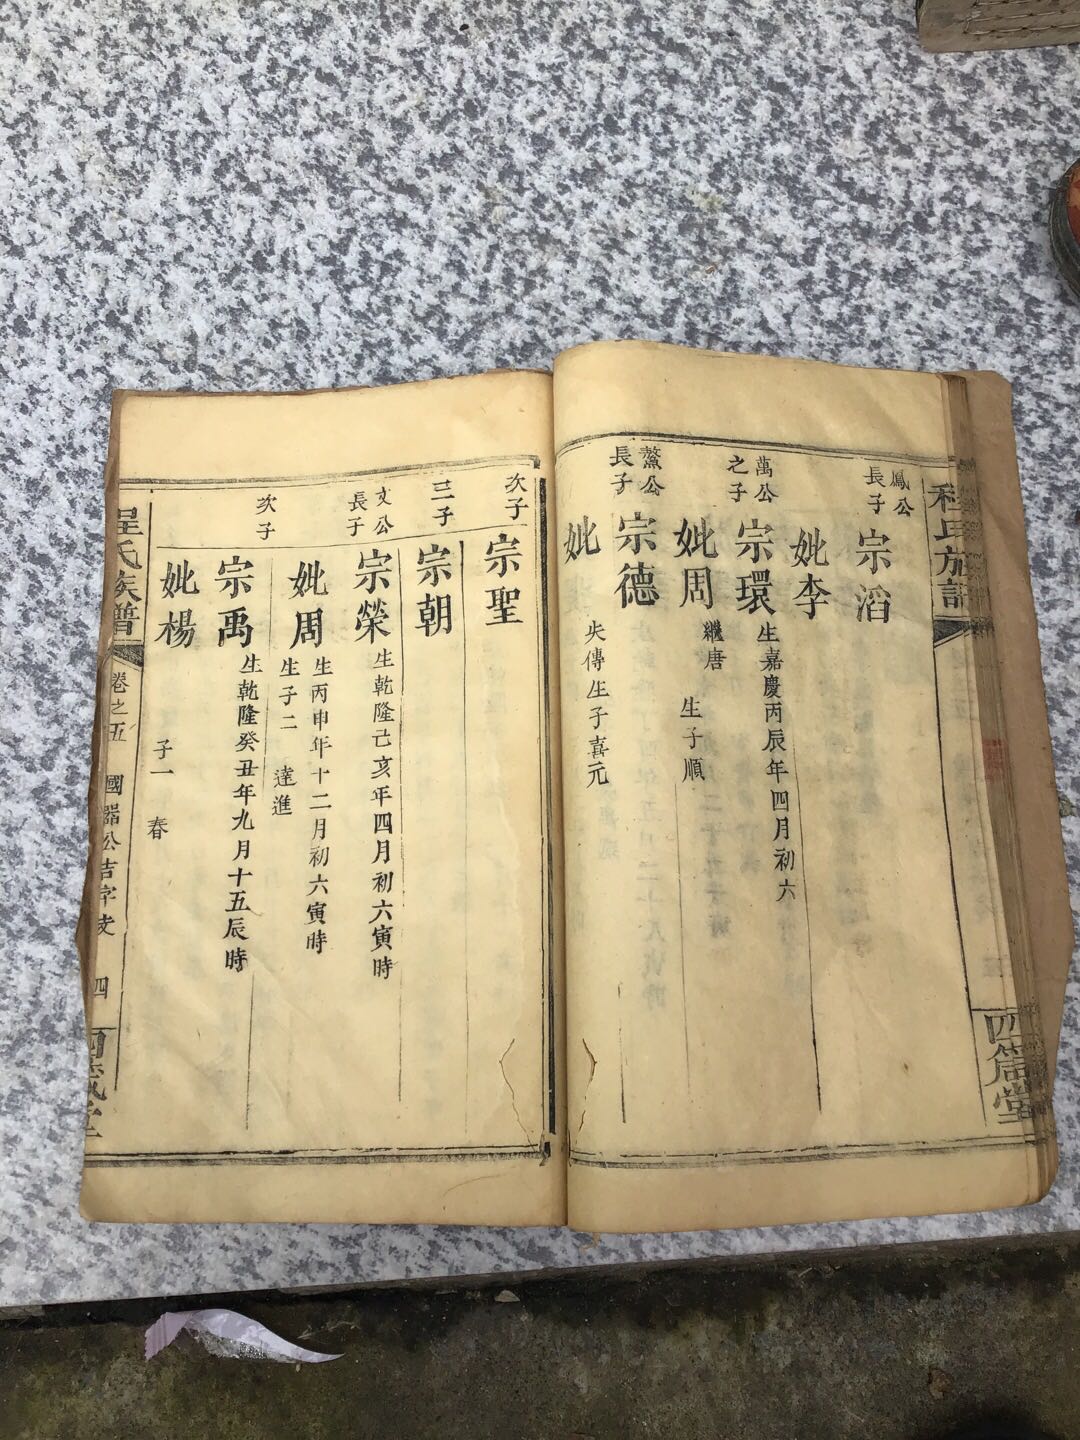 程氏族譜
四箴堂
鳳公
長子
宗滔
妣李
萬公
之子
宗環
生嘉慶丙辰年四月初六
妣周
繼唐
生子順
鰲公
長子
宗德
妣
失傳生子喜元
次子
宗聖
三子
宗朝
文公
長子
宗榮
生乾隆己亥年四月初六寅時
妣周
生丙申年十二月初六寅時
生子二 達進
次子
宗禹
生乾隆癸丑年九月十五辰時
妣楊
子一 春
程氏族譜
卷之五
國器公吉字支
四
四箴堂